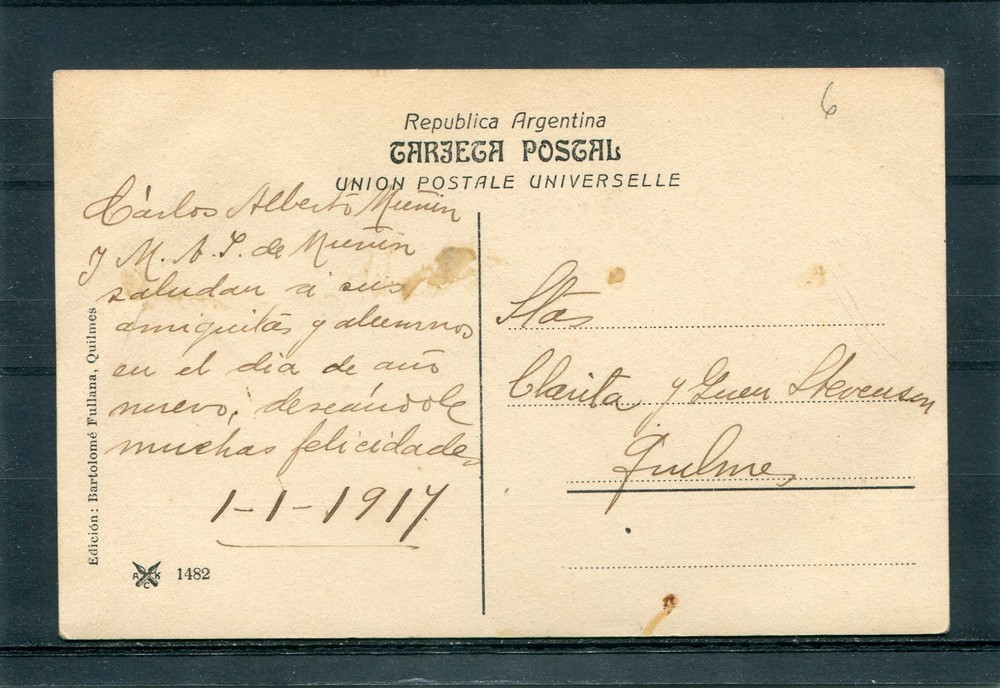 6
Republica Argentina
TARJETA POSTAL
UNION POSTALE UNIVERSELLE
Cárlos Alberto
y M. A. P. de
saludan á sus
amiguitas y alumnos
en el dia de año
nuevo, deseándole
muchas felicidades
1-1-1917
Stas
Clarita y Stevenson
Quilmes
Edición: Bartolomé Fullana, Quilmes
1482